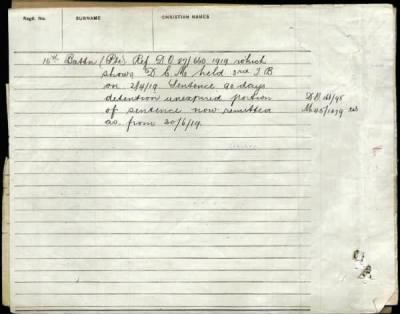 Regtl. No. SURNAME CHRISTIAN NAMES
16th Battn (Pte) Ref D.O 87/660 1919 which
shows D. C. M. held 3rd T B
on 2/4/19 Sentence 90 days
detention unexpired portion D.O.
of sentence now remitted
as from 20/6/19.